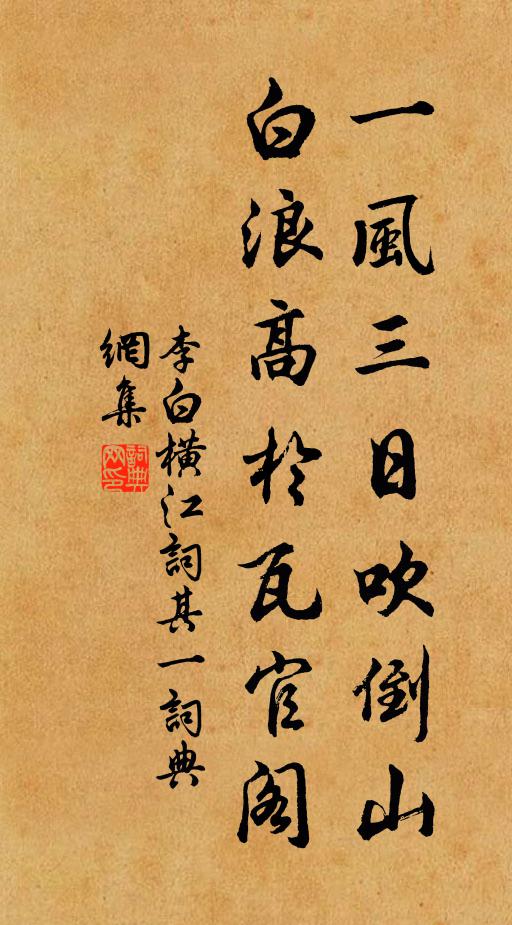 一風三日吹倒山
白浪高於瓦官閣
李白橫江詞其一詞典
網集
詞典
網印